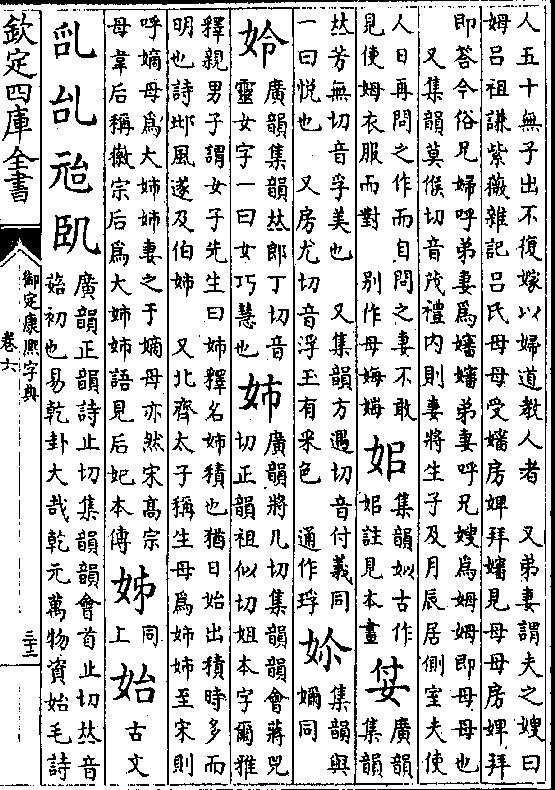 人五十無子出不復嫁以婦道教人者 又弟妻謂夫之嫂曰
姆吕祖謙紫薇雜記吕氏母母受嬸房婢拜嬸見母母房婢拜
即答今俗兄婦呼弟妻為嬸嬸弟妻呼兄嫂為姆姆即母母也
又集韻莫候切音茂禮内則妻將生子及月辰居側室夫使
人日再問之作而自問之妻不敢
見使姆衣服而對 别作母娒
㚶
集韻姒古作
㚶註見本畫
姇
廣韻
集韻
𠀤芳無切音孚美也 又集韻方遇切音付義同
一曰悅也 又房尤切音浮玉有采色 通作琈
妳
集韻與
嬭同
姈
廣韻集韻𠀤郎丁切音
靈女字一曰女巧慧也
姉
廣韻將几切集韻韻會蔣兕
切正韻祖似切姐本字爾雅
釋親男子謂女子先生曰姉釋名姉積也猶日始出積時多而
明也詩邶風遂及伯姉 又北齊太子稱生母為姉姉至宋則
呼嫡母為大姉姉妻之于嫡母亦然宋高宗
母韋后稱徽宗后為大姉姉語見后妃本傳
姊
同
上
始
古文
乨兘
廣韻正韻詩止切集韻韻會首止切𠀤音
始初也易乾卦大哉乾元萬物資始毛詩
欽定四庫全書
御定康熙字典
卷六
三十二